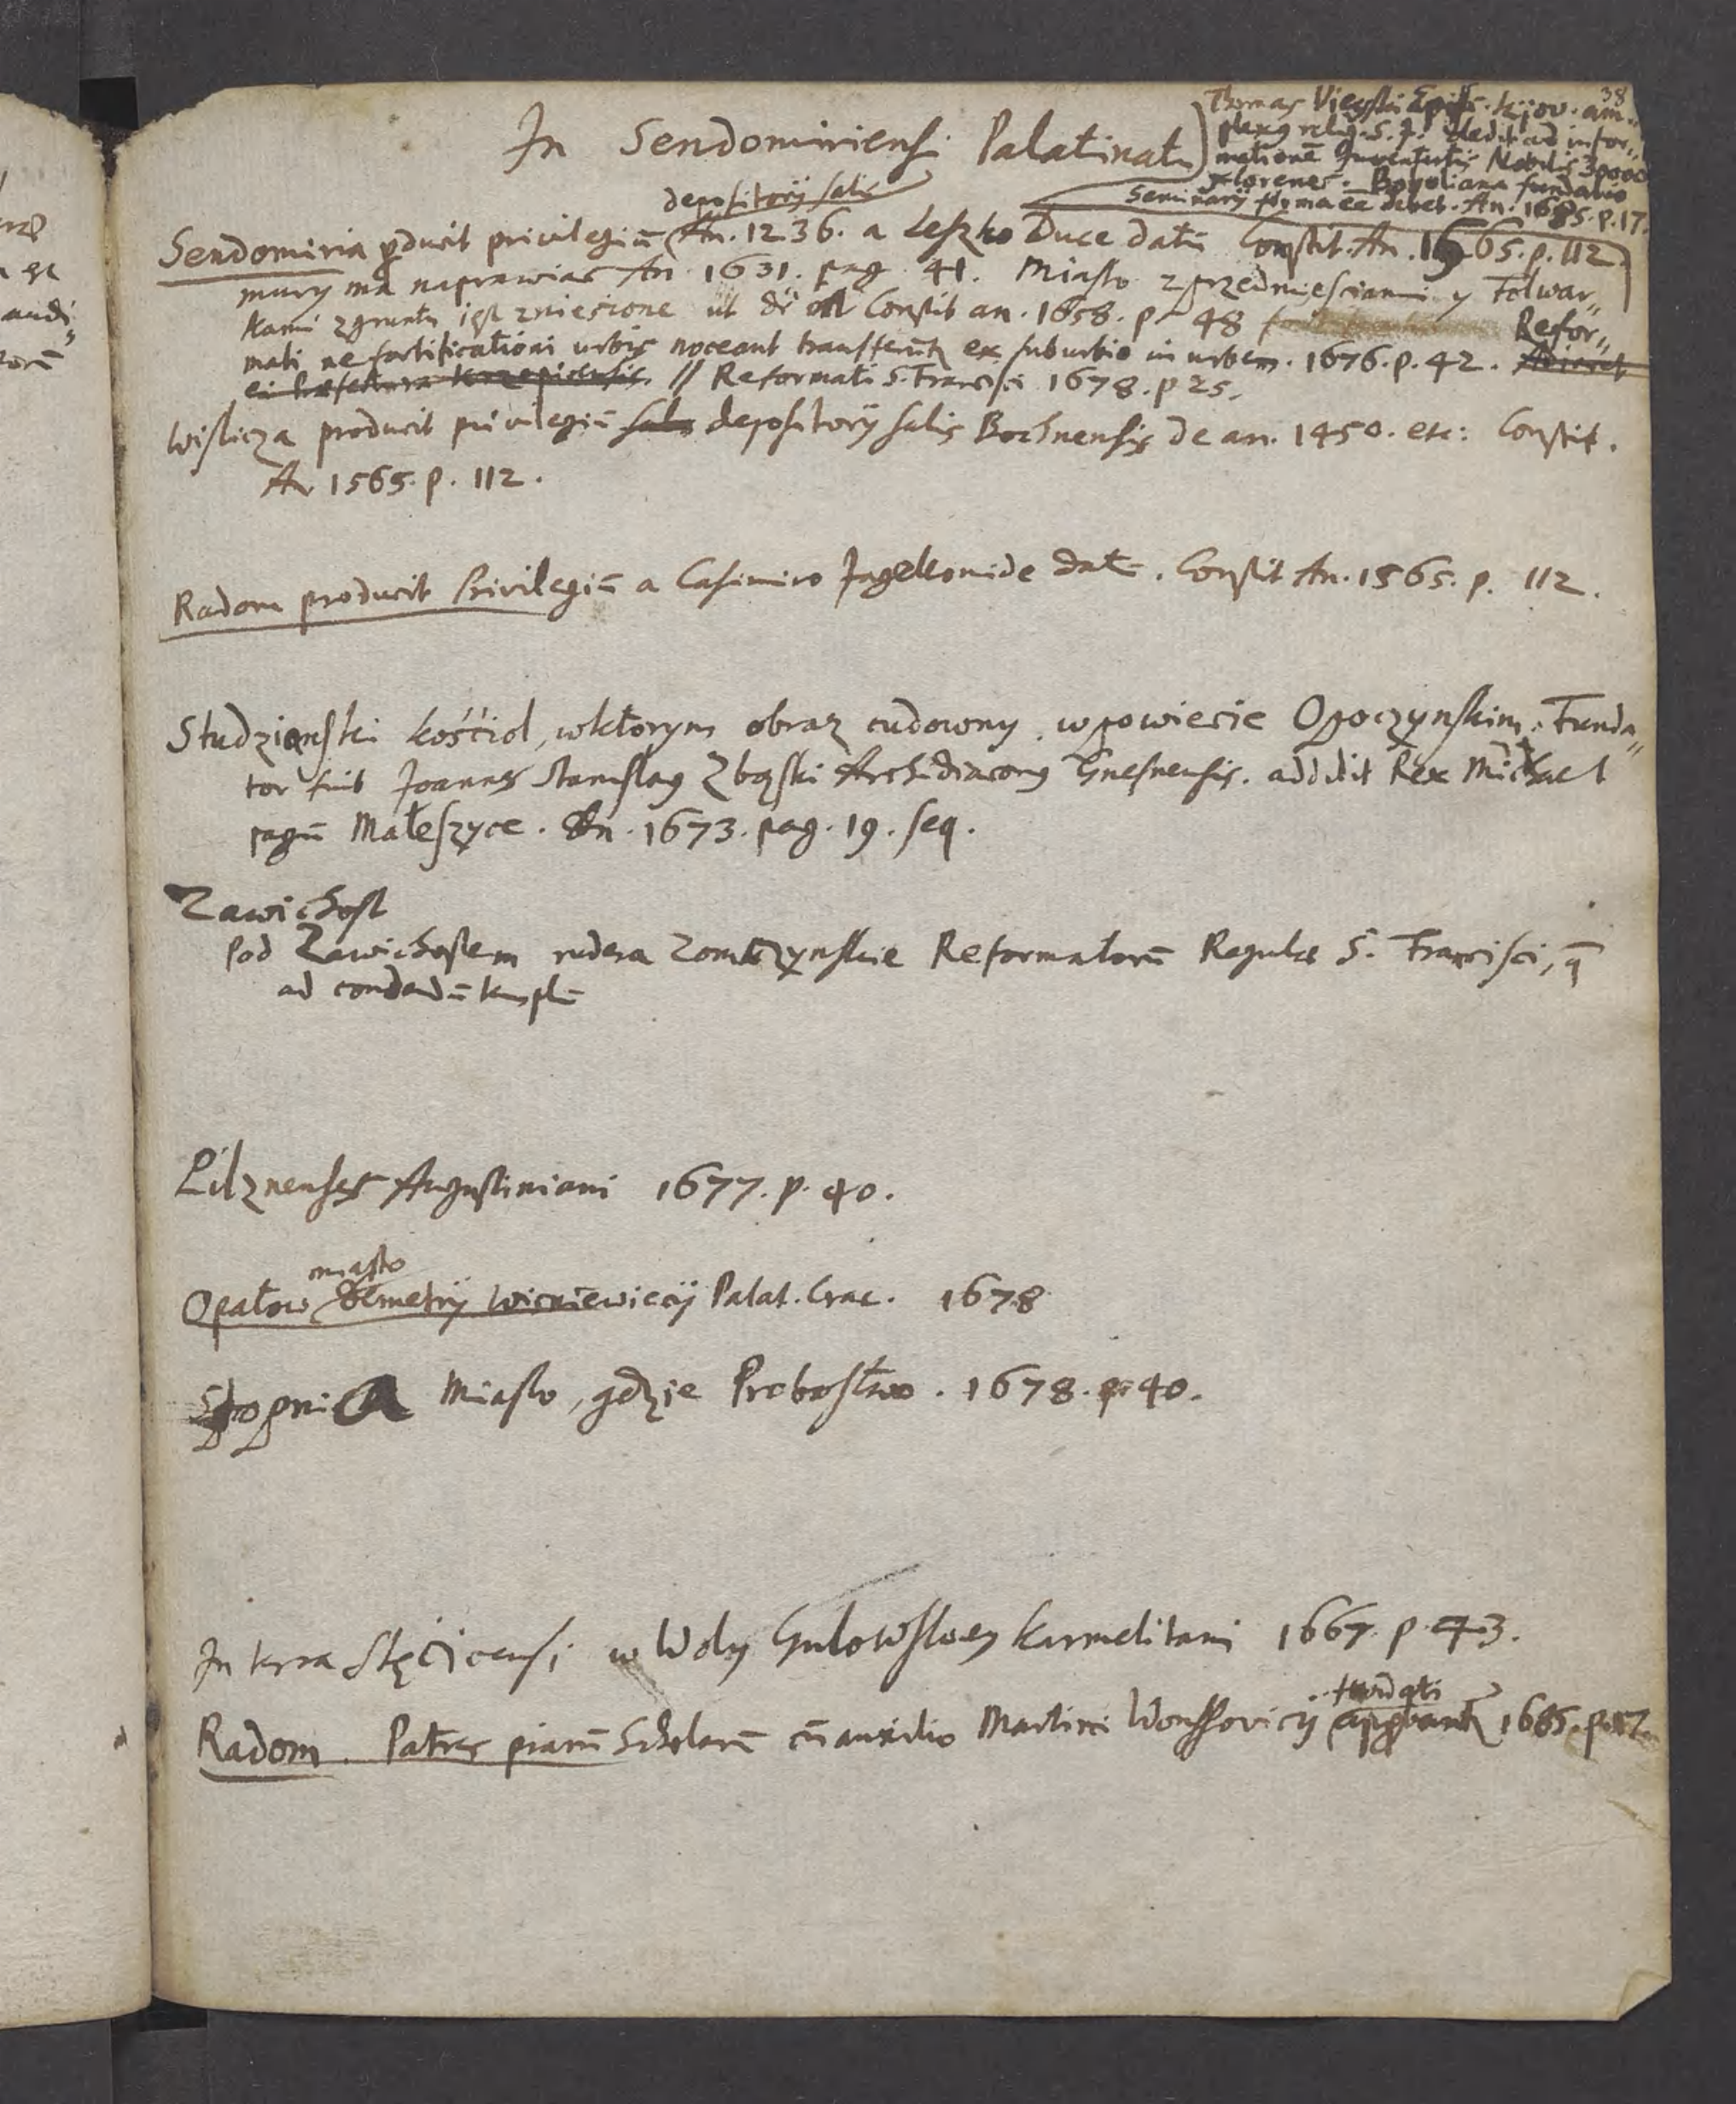 38
In Sendomiriensi Palatinatu
Thomas Uieyski Epis. kijov. am„
plexus relig. S. J. dedit ad infor„
mationē Iuventutis Nobilis 30000
florenes. Boboliana fundatio
Seminarij forma ee debet. An. 1685. p. 17.
depositorij salis
Sendomiria pducit privilegiū An. 1236. a Leszko Duce datū Constit. An. 1565. p. 112.
mury ma naprawiac An. 1631. pag. 41. Miasto z przedmiesciami y Folwar„
kami zgruntu iest zniesione ut dr Constit an. 1658. p. 48 Refor„
mati ne fortificationi urbis noceant transferūt ex suburbio in urbem. 1676. p. 42.
ei Præfectura Krzepicensis // Reformati S. Francisci 1678. p 25.
Wislicza producit privilegiū depositorij salis Bochnensis de an. 1450. etc: Constit.
An 1565. p. 112.
Radom producit Privilegiū a Casimiro Jagellonide datū. Constit An. 1565. p. 112.
Studzianski kościol, wktorym obraz cudowny, wpowiecie Opoczynskim. Funda„
tor fuit Joannes Stanislaus Zbąski Archidiaconus Gnesnensis. addidit Rex Michael
pagū Małeszyce. An. 1673. pag. 19. seq.
Zawichost
Pod Zawichostem rudera Reformatorū Regulæ S. Francisci, q̄
ad condendū templū
Pilznenses Augustiniani 1677. p. 40.
miasto
Opatow Demetrij Wisniewiecij Palat. Crac. 1678
Stopnica Miasto, gdzie Probostwo. 1678. p. 40.
In terra Stęcicensi w Woly Gulowskiey Karmelitani 1667. p. 43.
fundati
Radom. Patres piarū Scholarū cū auxilio Martini approbantr 1685. p.